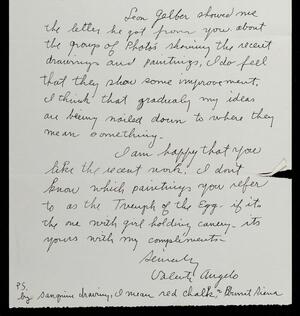 Leon Gelber showed me
the letter he got from you about
the group of Photos showing the recent
drawings and paintings, I do feel
that they show some improvement.
I think that gradualy my ideas
are being nailed down to where they
mean something.
I am happy that you
like the recent work. I don't
know which paintings you refer
to as the Triumph of the Egg. if its
the one with girl holding canery - its
yours with my complements -
Sincerely
Valenti Angelo
P.S.
by sanguine drawing, I mean red chalk, = Burnt Siena